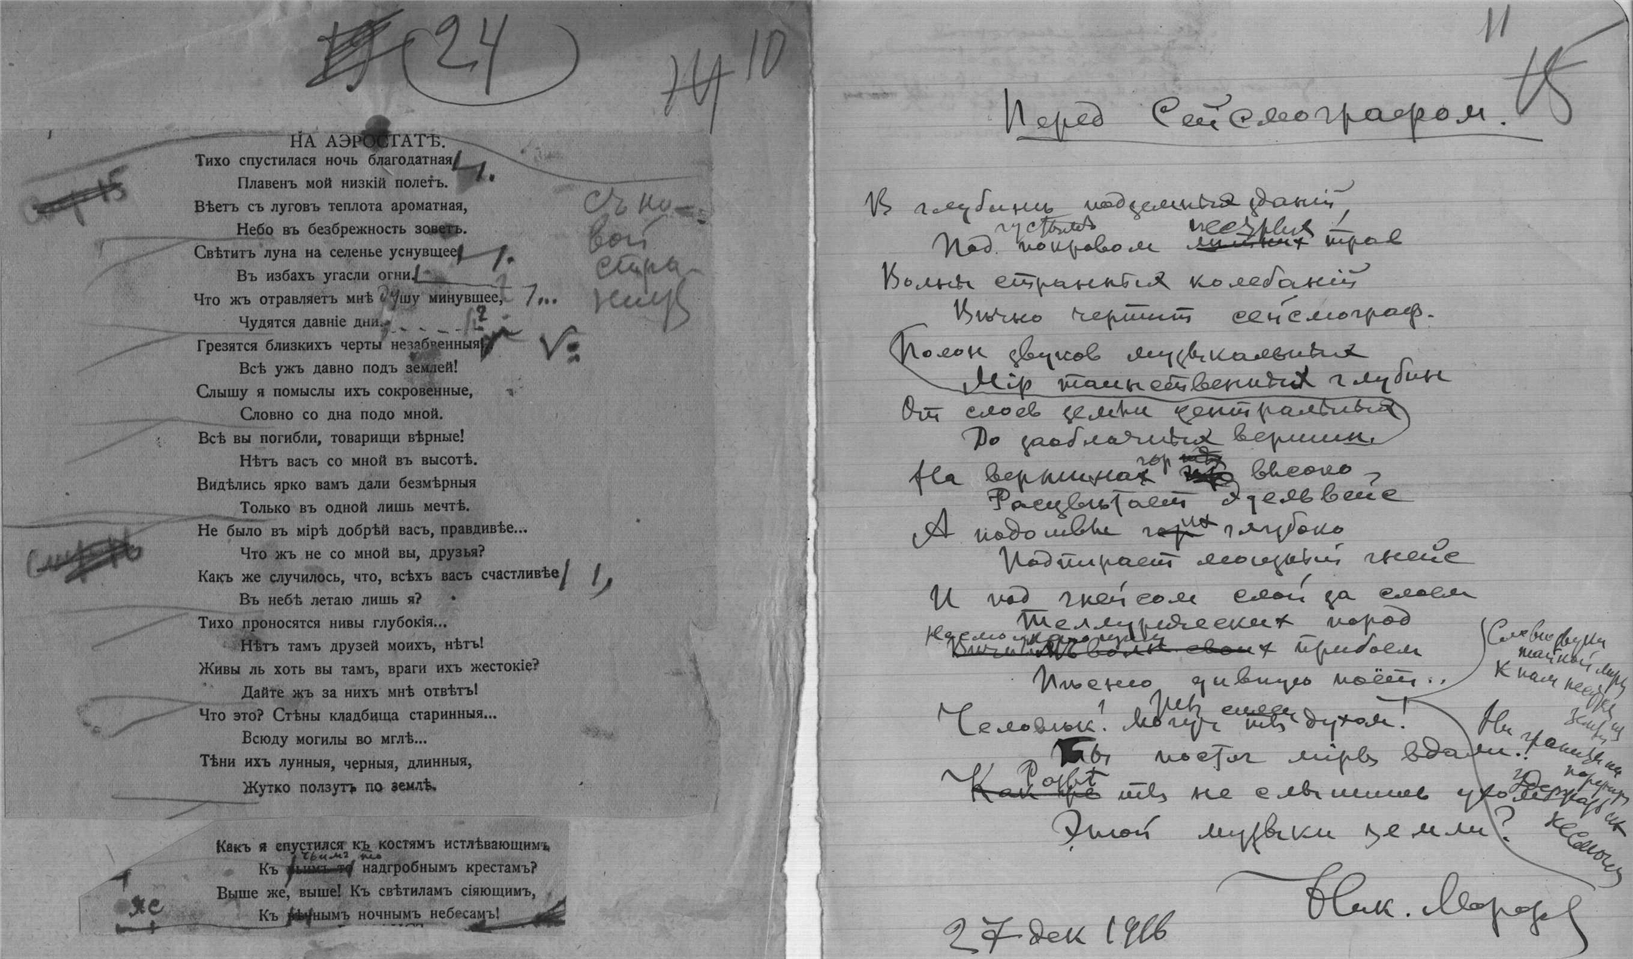 24
10
НА АЭРОСТАТѢ.
Тихо спустилася ночь благодатная
Плавенъ мой низкій полетъ.
Вѣетъ съ луговъ теплота ароматная,
Небо въ безбрежность зоветъ.
Свѣтитъ луна на селенье уснувшее
Въ избахъ угасли огни.
Что жъ отравляетъ мнѣ душу минувшее,
Чудятся давніе дни.
Грезятся близкихъ черты незабвенныя
Всѣ ужъ давно подъ землей!
Слышу я помыслы ихъ сокровенные,
Словно со дна подо мной.
Всѣ вы погибли, товарищи вѣрные!
Нѣтъ васъ со мной въ высотѣ.
Видѣлись ярко вамъ дали безмѣрныя
Только въ одной лишь мечтѣ.
Не было въ мірѣ добрѣй васъ, правдивѣе...
Что жъ не со мной вы, друзья?
Какъ же случилось, что, всѣхъ васъ счастливѣе
Въ небѣ летаю лишь я?
Тихо проносятся нивы глубокія...
Нѣтъ тамъ друзей моихъ, нѣтъ!
Живы ль хоть вы тамъ, враги ихъ жестокіе?
Дайте жъ за нихъ мнѣ отвѣтъ!
Что это? Стѣны кладбища старинныя...
Всюду могилы во мглѣ...
Тѣни ихъ лунныя, черныя, длинныя,
Жутко ползутъ по землѣ.
съ но-
вой
стра-
ницы
Какъ я спустился къ костямъ истлѣвающимъ,
чьимъ то
Къ надгробнымъ крестамъ?
Выше же, выше! Къ свѣтиламъ сіяющимъ,
Къ нымъ ночнымъ небесамъ!
11
15
Перед Сейсмографом.
В глубинѣ подземных зданій,
густымъ
Под покровом трав
Волны странных колебаній
Вѣчно чертит сейсмограф.
Полон звуков музыкальных
Мір таинственных глубин
От слоев земли центральных
До заоблачных вершин
гор
На вершинах высоко
Расцвѣтает эдельвейс
А подошвы их глубоко
Подпирает мощный гнейс
И под гнейсом слой за слоем
Теллурических пород
прибоем
Пѣсню дивную поёт..
Человѣк! Могуч ты духом!
Ты постиг міры вдали..
ты не слышишь ухом
Этой музыки земли?
Ник. Морозов
27 дек 1916